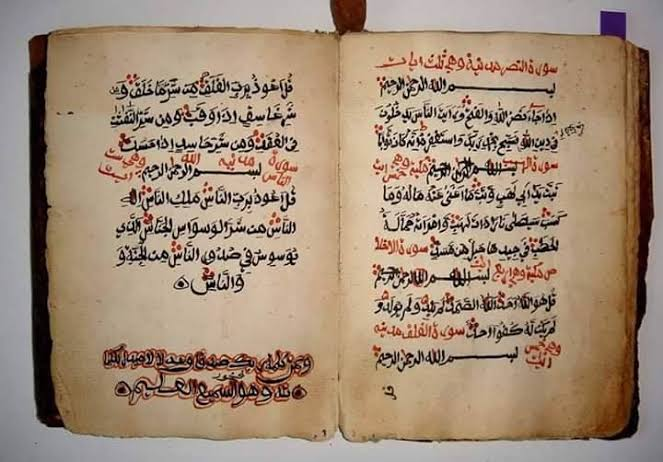 سورة النصر مدنية وهي ثلث ايات
بسم الله الرحمن الرحيم
اذا جاء نصر الله والفتح ورايت الناس يدخلون
في دين الله افواجا فسبح بحمد ربك واستغفره انه كان توابا
سورة الهب بسم الله الرحمن الرحيم مكية وهي خمس ايت
تبت يدا ابي لهب وتب ما اغنى عنه ماله وما
كسب سيصلى نارا ذات لهب وامراته حمالة
الحطب في جيدها حبل من مسد سورة الاخلا
ص مكية وهي اربع ايت بسم الله الرحمن الرحيم
قل هو الله احد الله الصمد لم يلد ولم يولد و
لم يكن له كفوا احد سورة الفلق مدنية
وهي خمس ايت بسم الله الرحمن الرحيم
قل
قل اعوذ برب الفلق من شر ما خلق ومن
شر غاسق اذا وقب ومن شر النفثت
في العقد ومن شر حاسد اذا حسد
سورة الناس مدنية بسم الله الرحمن الرحيم وهي ست ايت
قل اعوذ برب الناس ملك الناس اله
الناس من شر الوسواس الخناس الذي
يوسوس في صدور الناس من الجنة و
والناس
وتمت كلمت ربك صدقا وعدلا لا مبدل لكلما
ته وهو السميع العليم